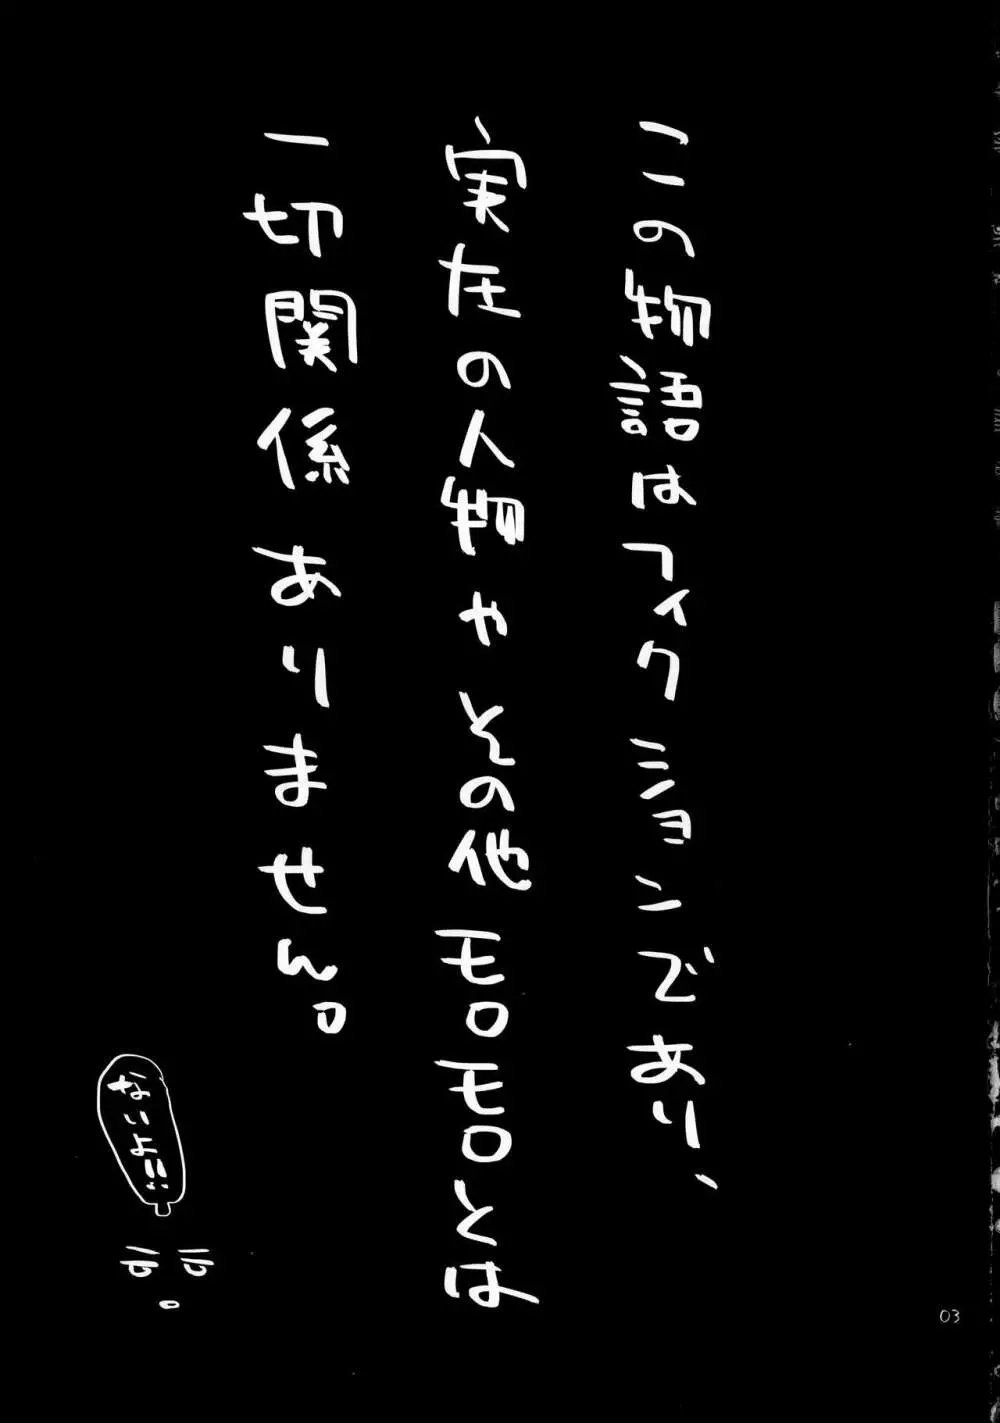 この物語はフィクションであり、
実在の人物やその他モロモロとは
一切関係ありません。
ないよ!!
03